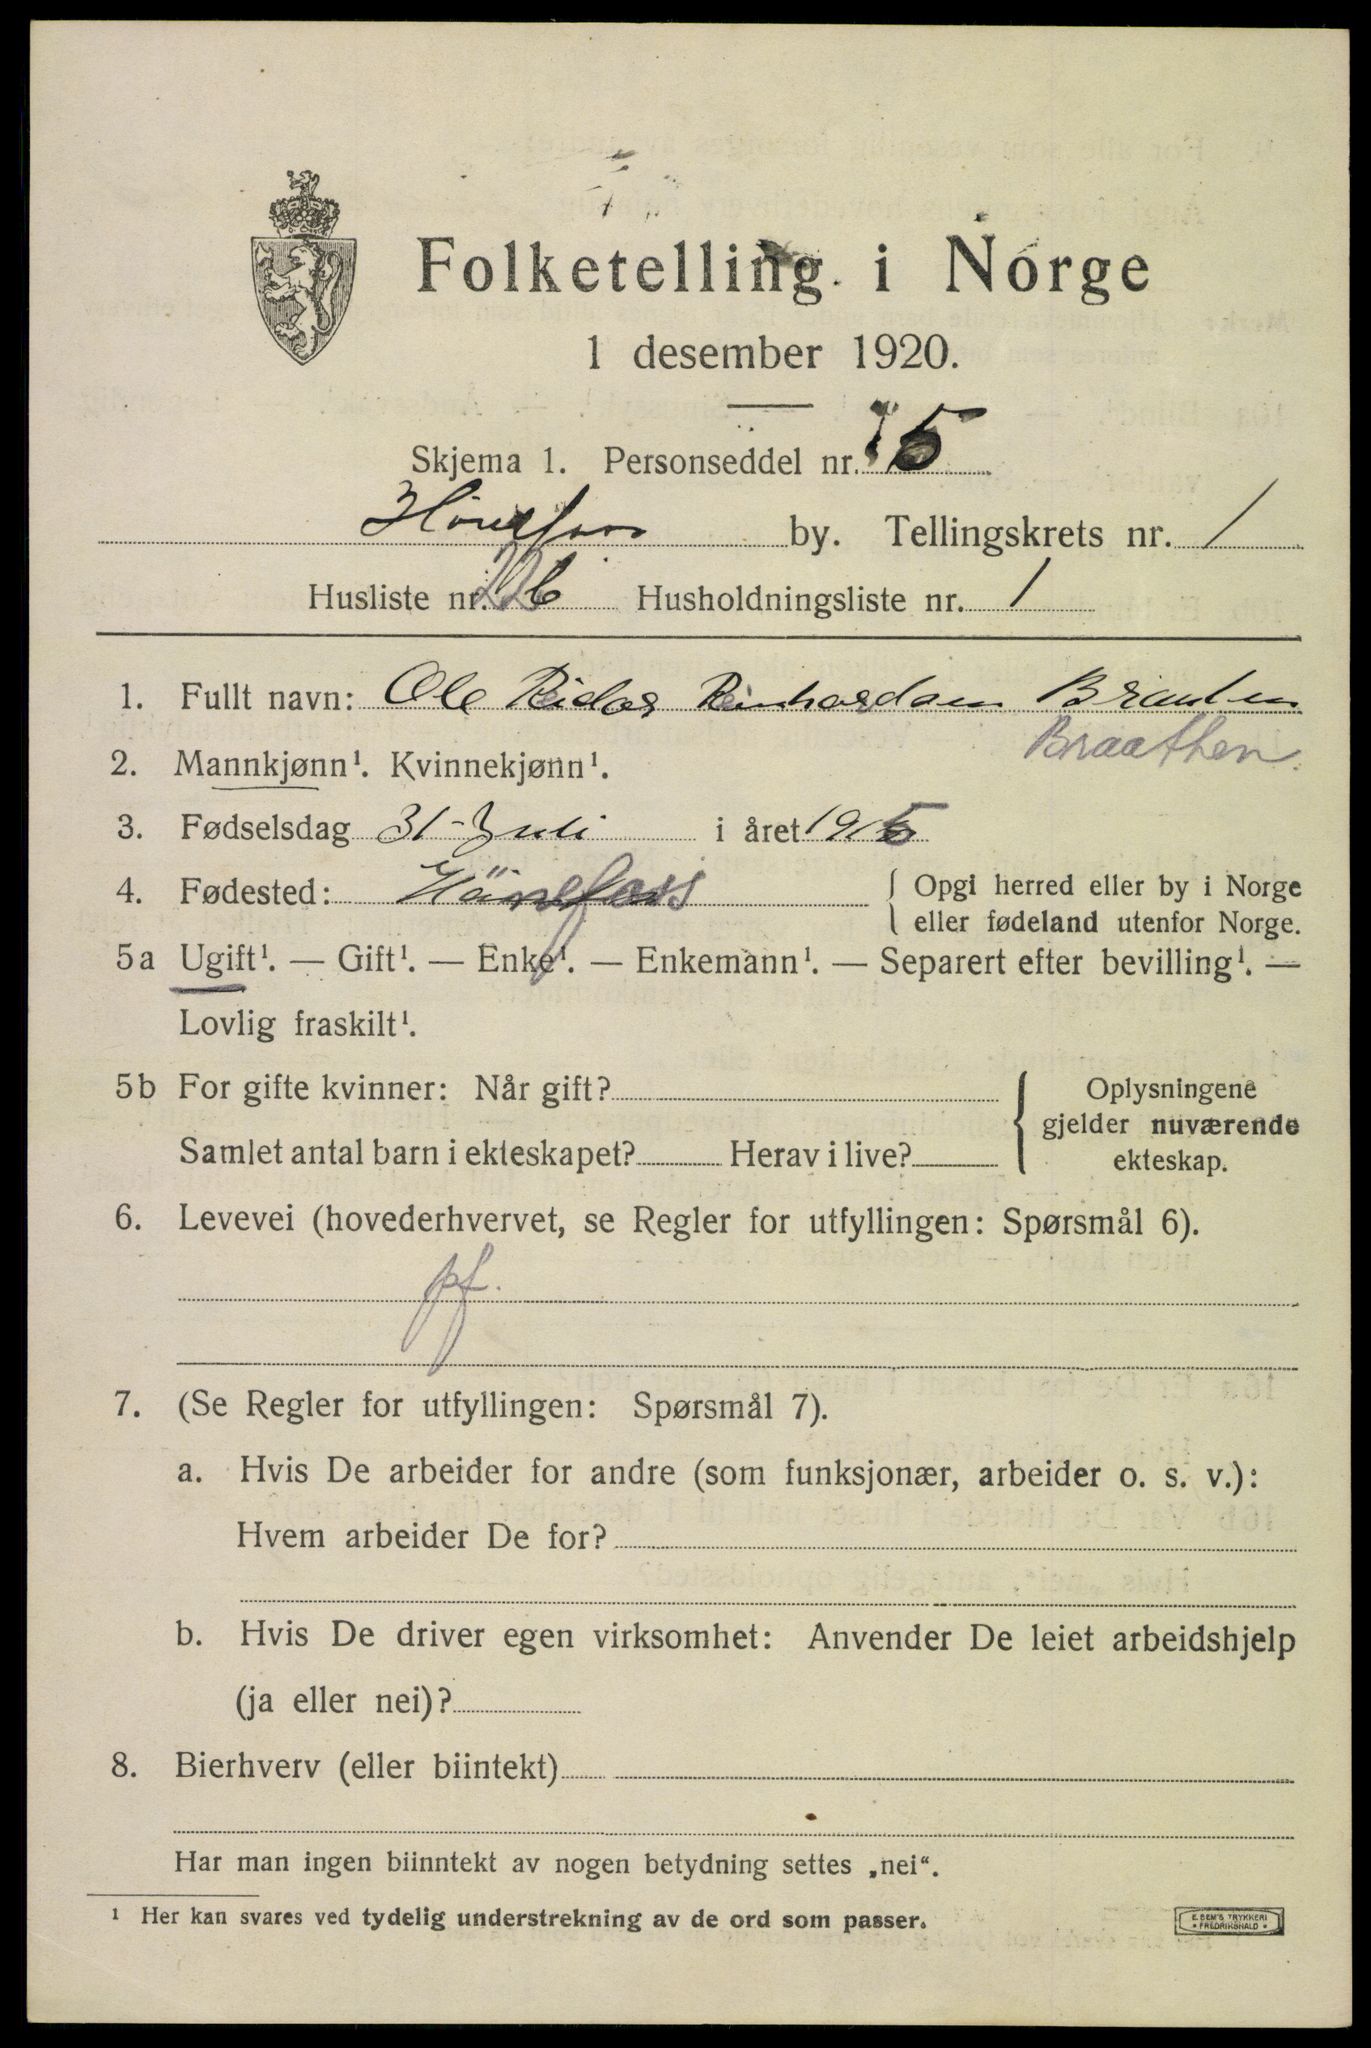 Folketelling i Norge
1 desember 1920.
Skjema 1. Personseddel nr. 5
Hönefoss by. Tellingskrets nr. 1
Husliste nr. 22 Husholdningsliste nr. 1
1. Fullt navn: Ole Reidar Reinhardam Braaten
Braathen
2. Mannkjønn¹. Kvinnekjønn¹.
3. Fødselsdag 31-Juli i året 1915
4. Fødested: Hönefoss { Opgi herred eller by i Norge
eller fødeland utenfor Norge.
5a Ugift¹. — Gift¹. — Enke¹. — Enkemann¹. — Separert efter bevilling¹. —
Lovlig fraskilt¹.
5b For gifte kvinner: Når gift? { Oplysningene
gjelder nuværende
Samlet antal barn i ekteskapet? Herav i live? ekteskap.
6. Levevei (hovederhvervet, se Regler for utfyllingen: Spørsmål 6).
pf.
7. (Se Regler for utfyllingen: Spørsmål 7).
a. Hvis De arbeider for andre (som funksjonær, arbeider o. s. v.):
Hvem arbeider De for?
b. Hvis De driver egen virksomhet: Anvender De leiet arbeidshjelp
(ja eller nei)?
8. Bierhverv (eller biintekt)
Har man ingen biinntekt av nogen betydning settes „nei“.
¹ Her kan svares ved tydelig understrekning av de ord som passer.
E. SEM'S TRYKKERI
FREDRIKSHALD